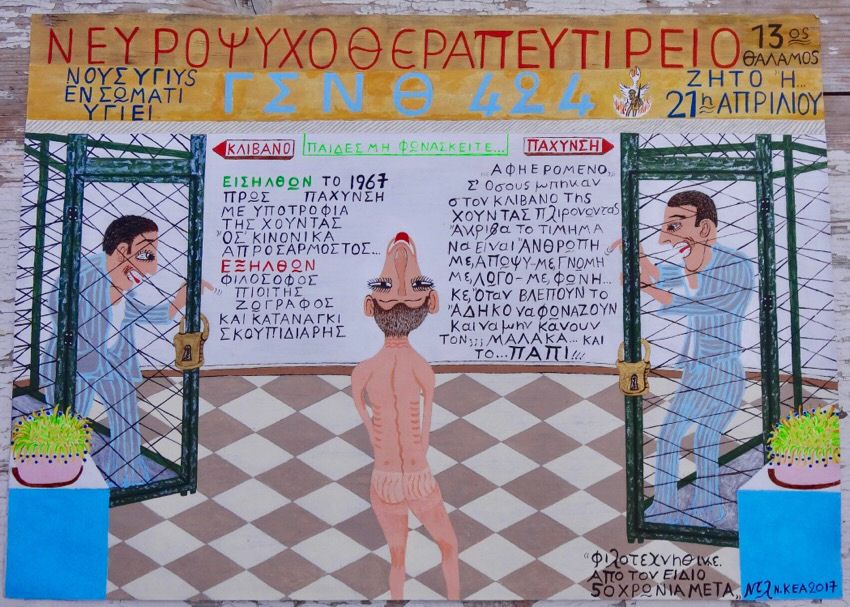 ΝΕΥΡΟΨΥΧΟΘΕΡΑΠΕΥΤΙΡΕΙΟ
13ος
ΘΑΛΑΜΟΣ
ΝΟΥΣ ΥΓΙΥΣ
ΕΝ ΣΩΜΑΤΙ
ΥΓΙΕΙ
ΓΣΝΘ 424
ΖΗΤΟ Ή...
21η ΑΠΡΙΛΙΟΥ
ΚΛΙΒΑΝΟ
ΠΑΙΔΕΣ ΜΗ ΦΩΝΑΣΚΕΙΤΕ...
ΠΑΧΥΝΣΗ
ΕΙΣΗΛΘΩΝ ΤΟ 1967
ΠΡΩΣ ΠΑΧΥΝΣΗ
ΜΕ ΥΠΟΤΡΟΦΙΑ
ΤΗΣ ΧΟΥΝΤΑΣ
"ΟΣ ΚΙΝΟΝΙΚΑ
ΑΠΡΟΣΑΡΜΟΣΤΟΣ...
ΕΞΗΛΘΩΝ
ΦΙΛΟΣΟΦΟΣ
ΠΙΟΙΤΗΣ
ΖΩΓΡΑΦΟΣ
ΚΑΙ ΚΑΤΑΝΑΓΚΙ
ΣΚΟΥΠΙΔΙΑΡΗΣ
"ΑΦΗΕΡΟΜΕΝΟ,,
Σ' Όσους μπηκαν
στον ΚΛΙΒΑΝΟ της
ΧΟΥΝΤΑΣ Πλιροντας
Ακριβα το ΤΙΜΗΜΑ
Να ΕΙΝΑΙ ΑΝΘΡΩΠΗ
ΜΕ, ΑΠΟΨΥ-ΜΕ, ΓΝΟΜΗ
ΜΕ, ΛΟΓΟ-ΜΕ, ΦΩΝΗ...
ΚΕ, Όταν ΒΛΕΠΟΥΝ το
ΑΔΗΚΟ να ΦΟΝΑΖΟΥΝ
Και να μην κανουν
ΤΟΝ;;; ΜΑΛΑΚΑ... και
το... ΠΑΠΙ!!!
"Φιλοτεχνηθικε
ΑΠΟ ΤΟΝ ΕΙΔΙΟ
50 ΧΡΩΝΙΑ ΜΕΤΑ,,
Ν. ΚΕΑ 2017